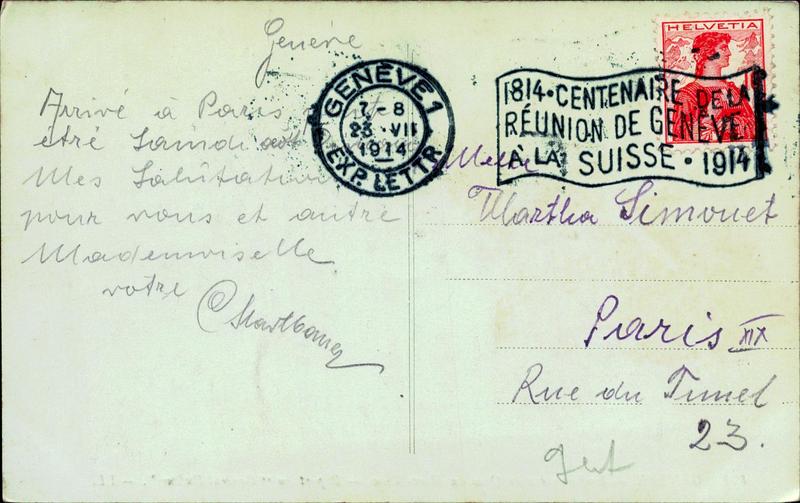 Genève
Arrivé à Paris
être Samdi
Mes Salutation
pour vous et autre
Mademoiselle
votre
GENÈVE 1
7-8
23.VII
1914
EXP. LETTR.
HELVETIA
1814 • CENTENAIRE DE LA
RÉUNION DE GENÈVE
À LA SUISSE • 1914
Melle
Martha Simonet
Paris XIX
Rue du Tunel
23.